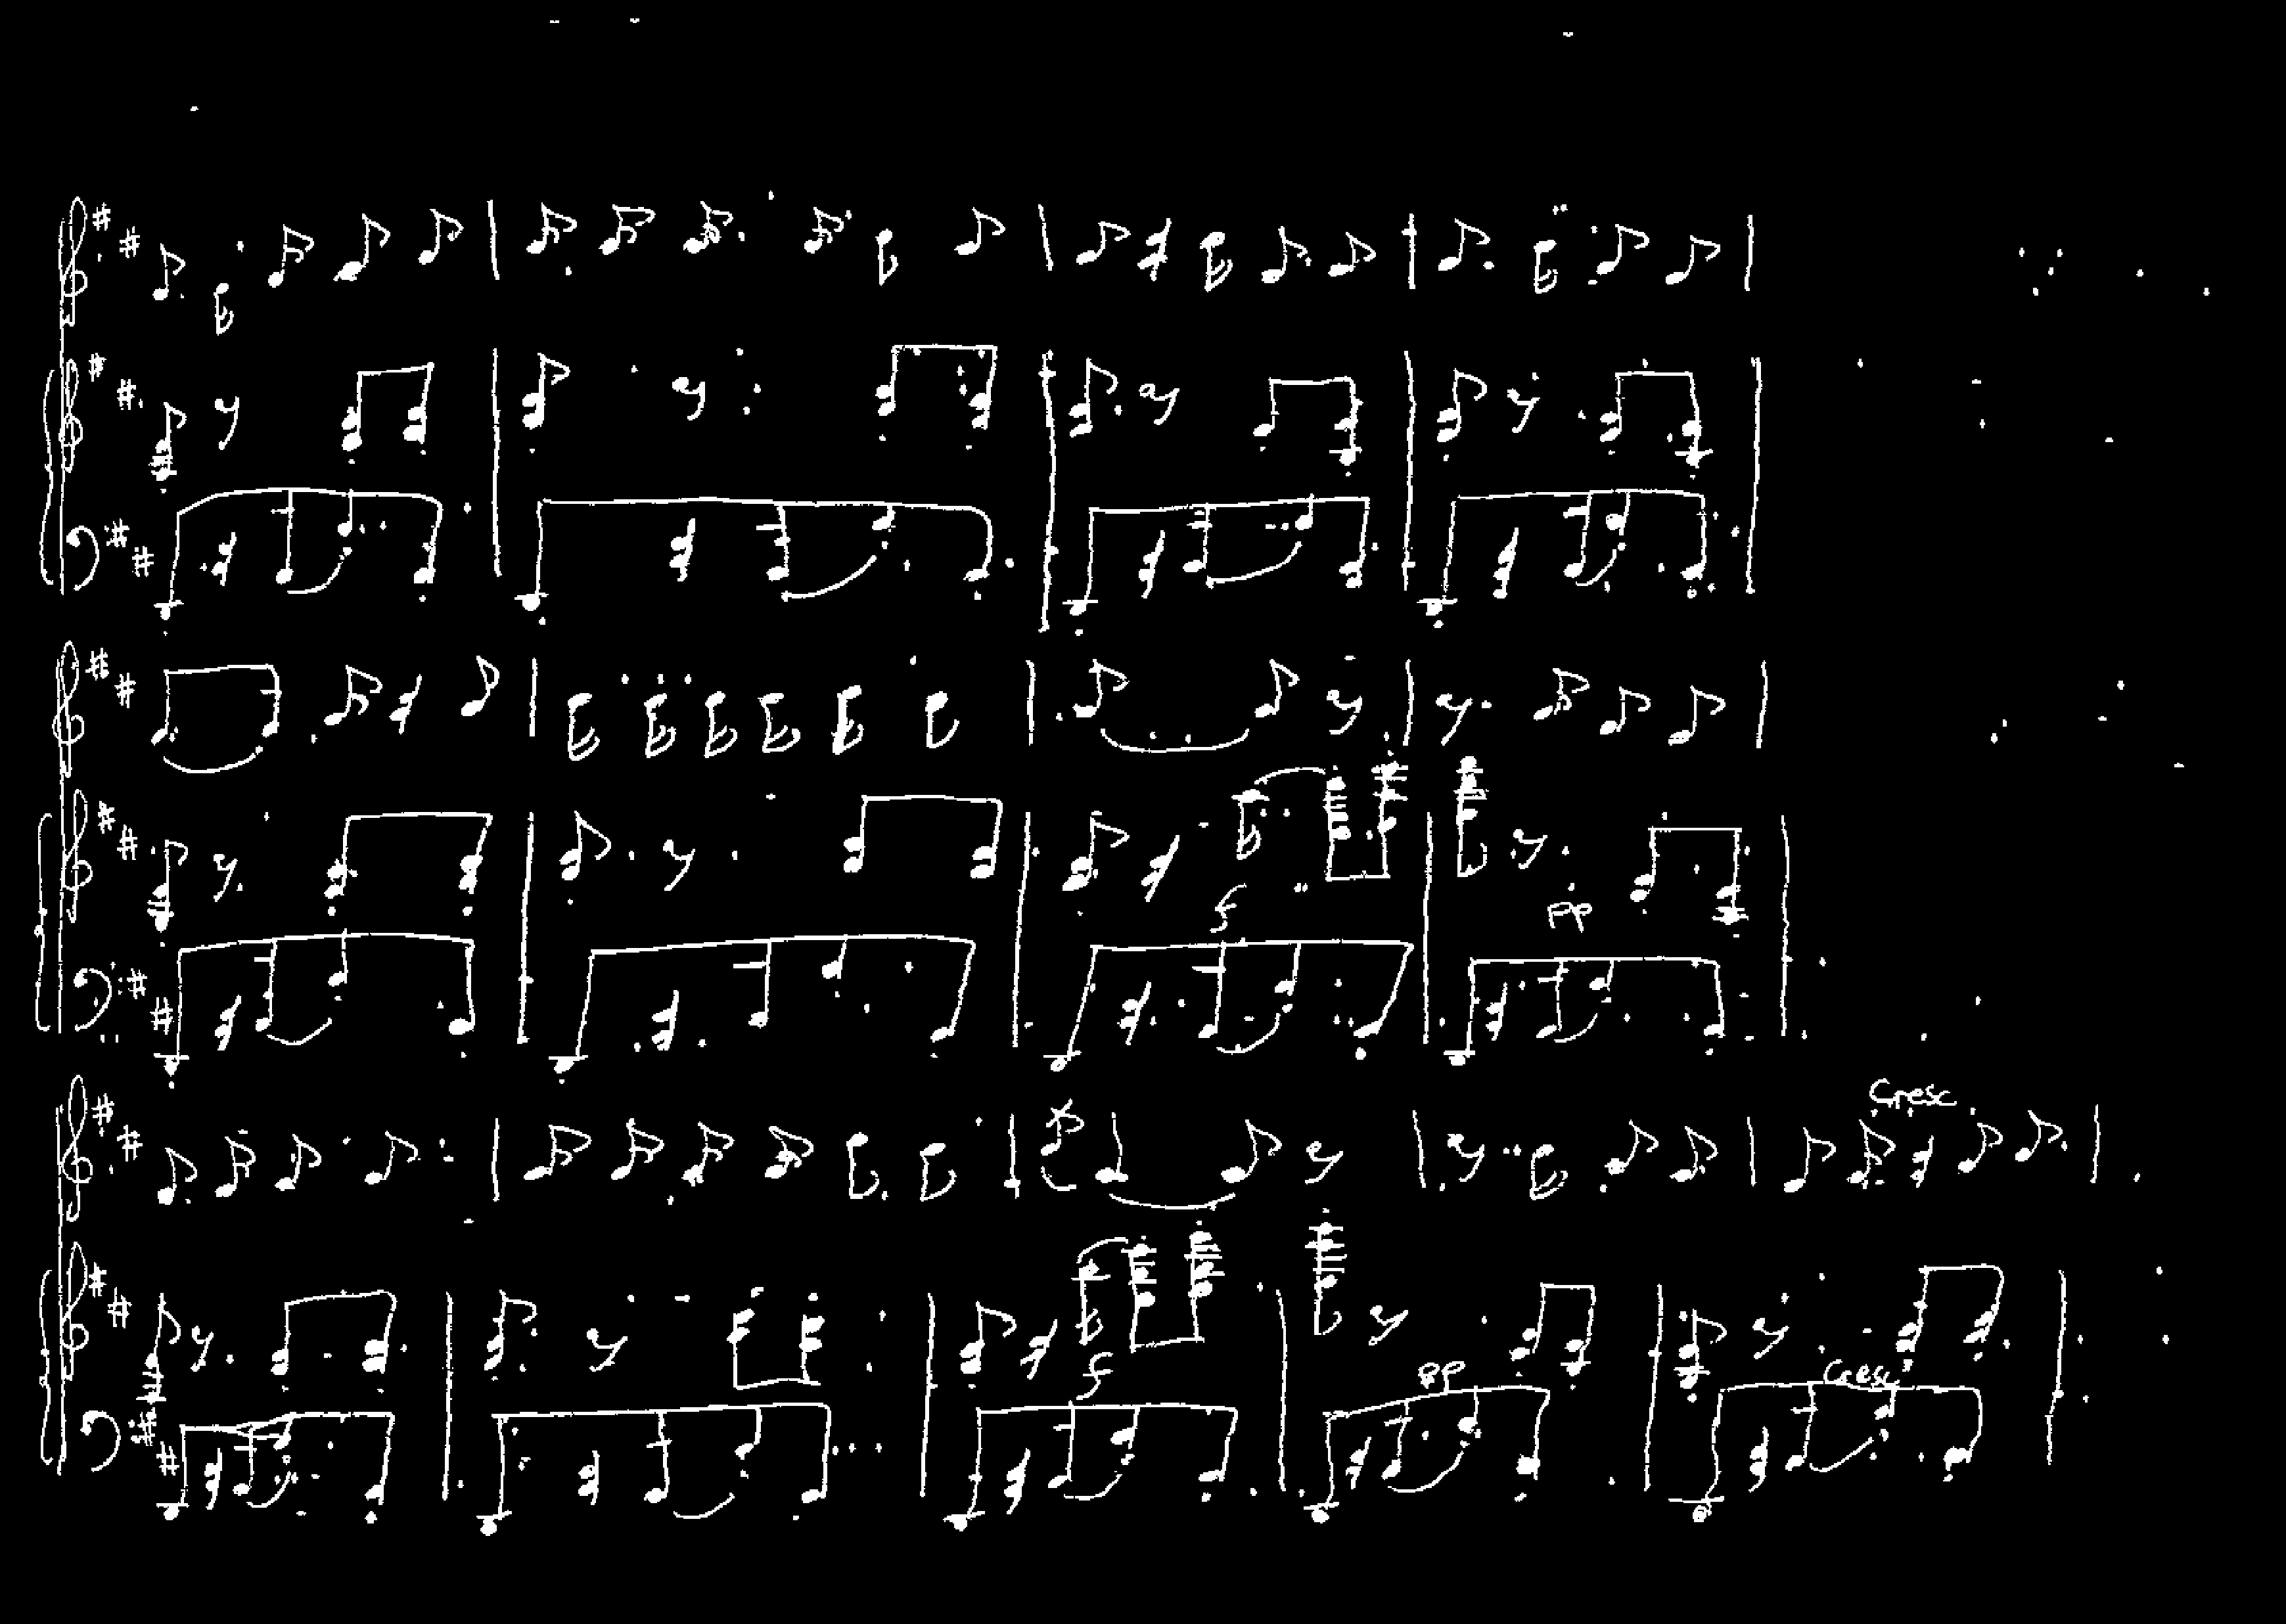 f
pp
Cresc
f
pp
Cresc